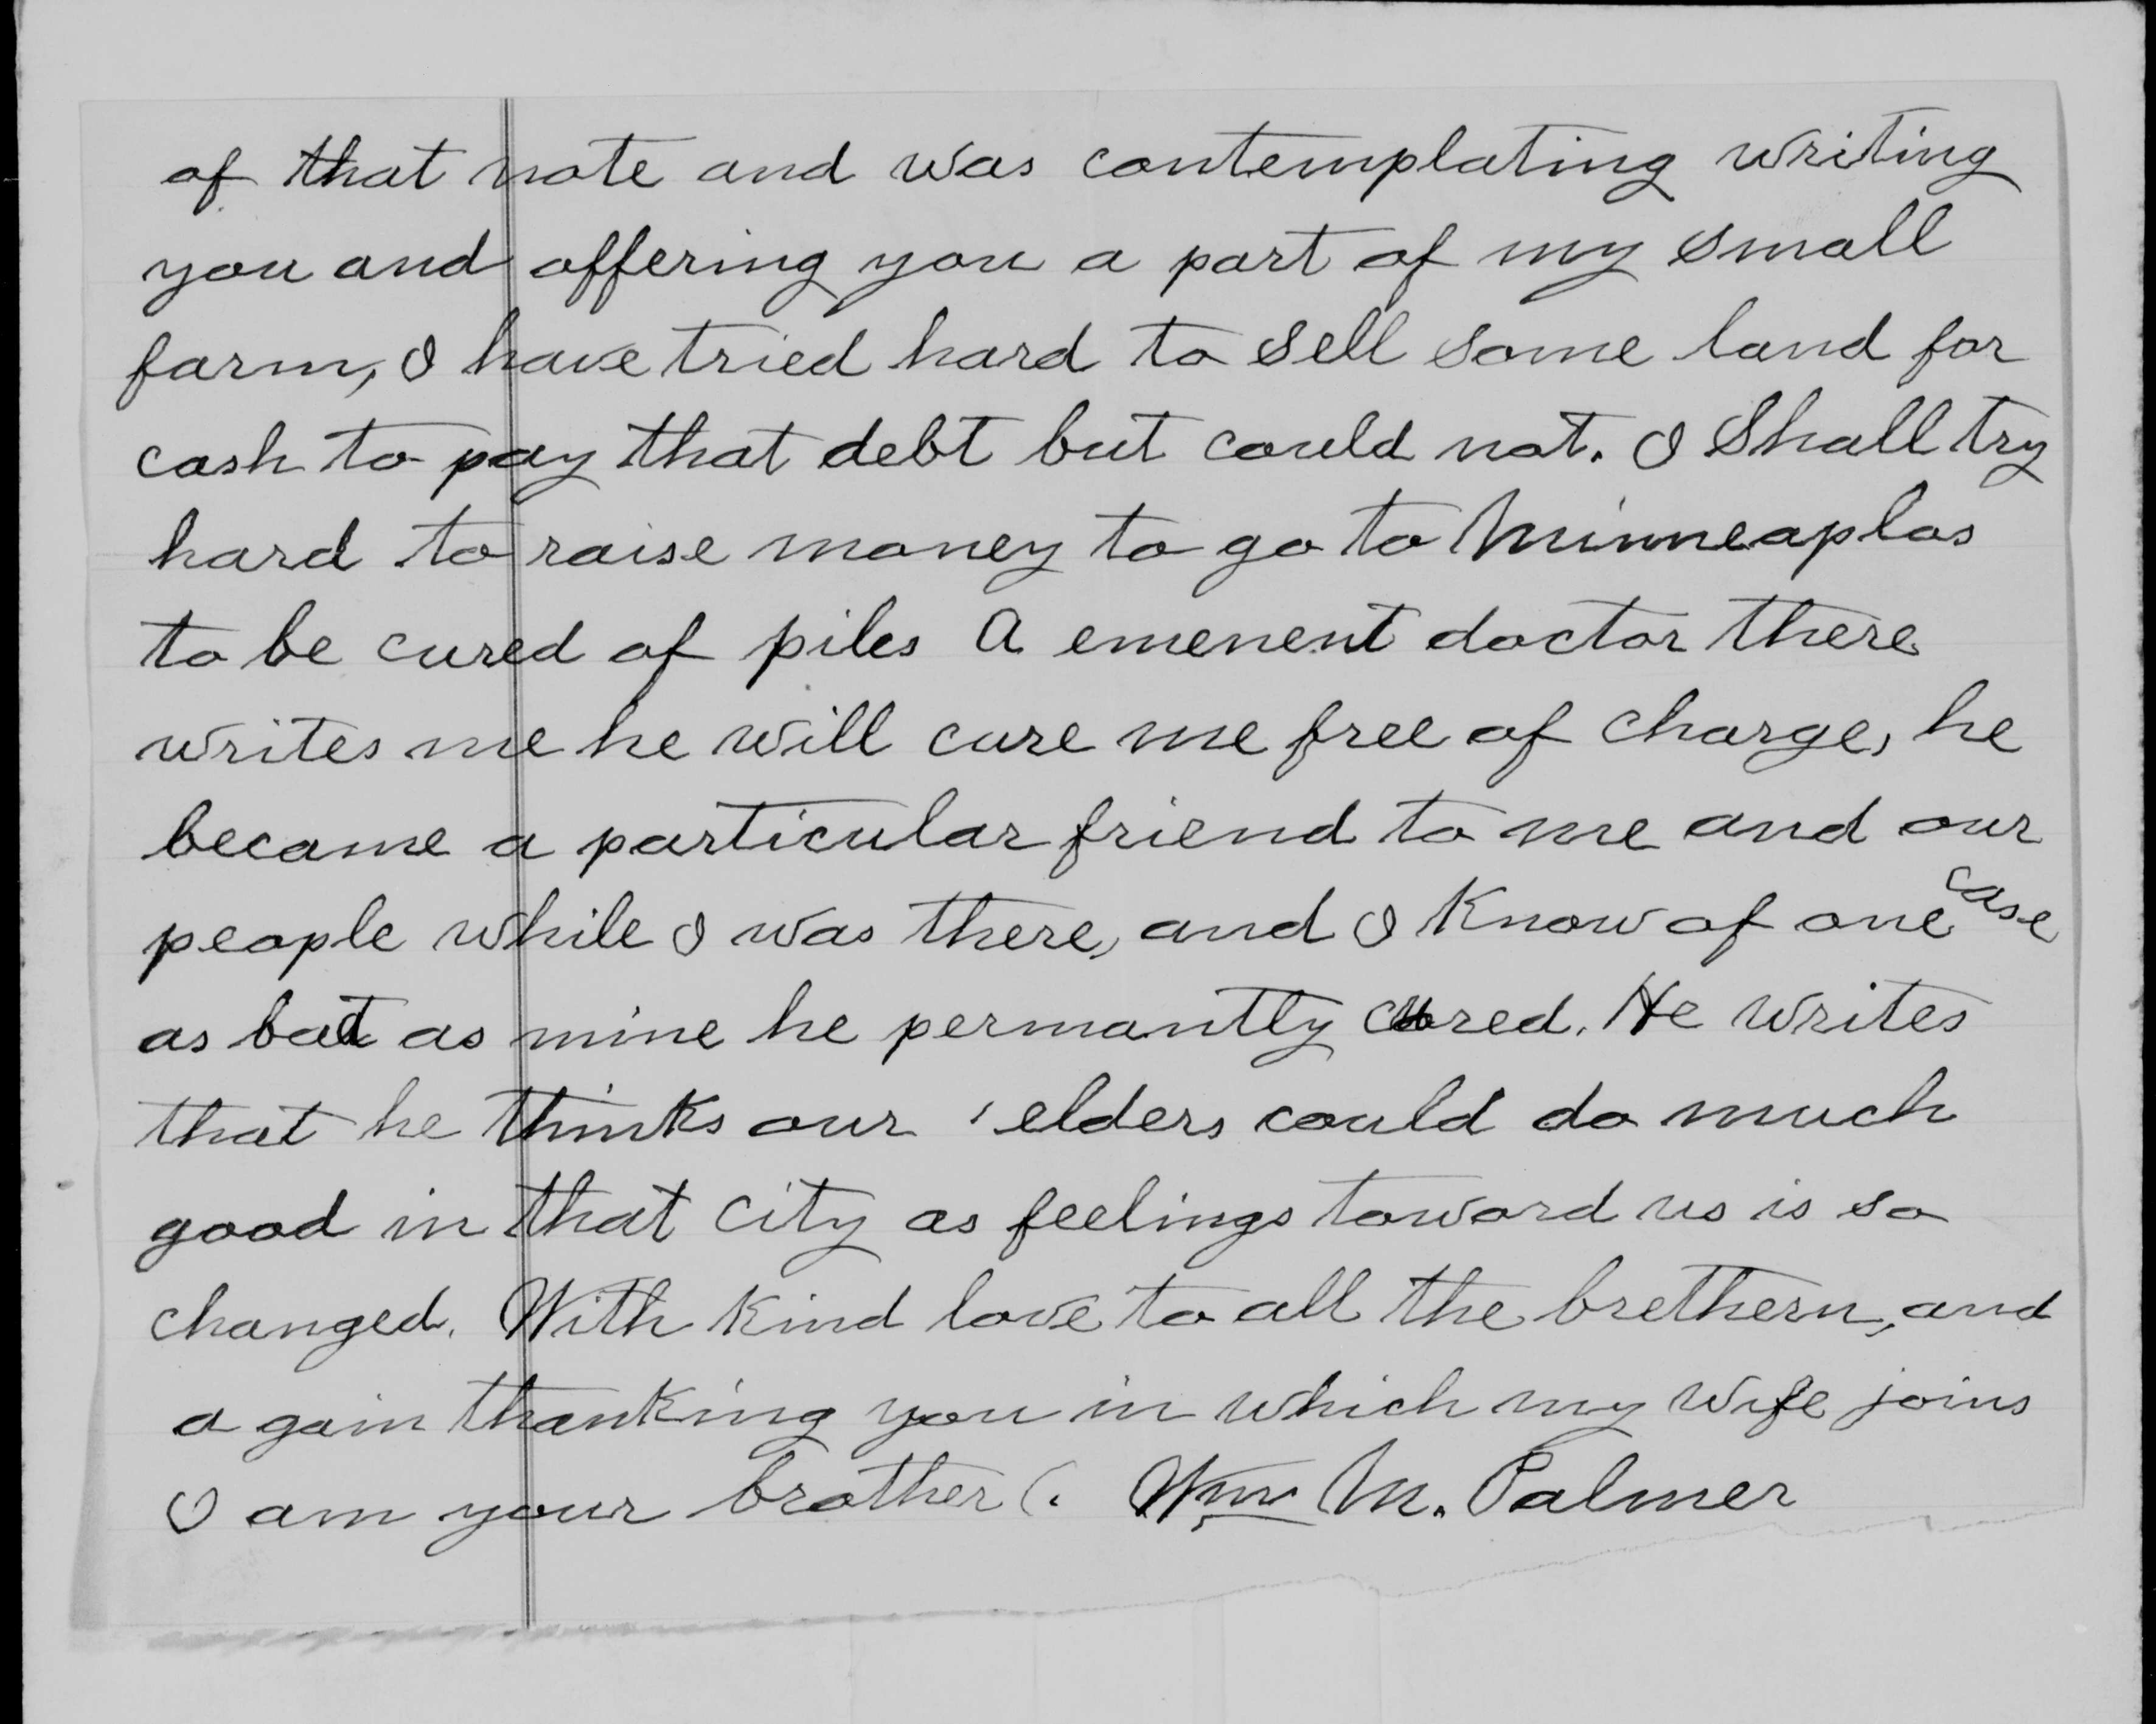 of that note and was contemplating writing
you and offering you a part of my small
farm, I have tried hard to sell some land for
cash to pay that debt but could not. I Shall try
hard to raise money to go to Minneaplos
to be cured of piles A emenent doctor there
writes me he will cure me free of charge, he
became a particular friend to me and our
people while I was there, and I Know of one case
as bad as mine he permantly cured. He writes
that he thinks our elders could do much
good in that city as feelings toward us is so
changed. With kind love to all the brethern, and
a gain thanking you in which my wife joins
I am your brother (. Wm M. Palmer